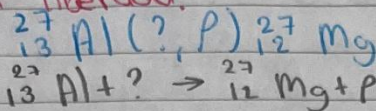 ²⁷₁₃ Al(?, p) ²⁷₁₂ Mg
²⁷₁₃ Al + ? → ²⁷₁₂ Mg + p